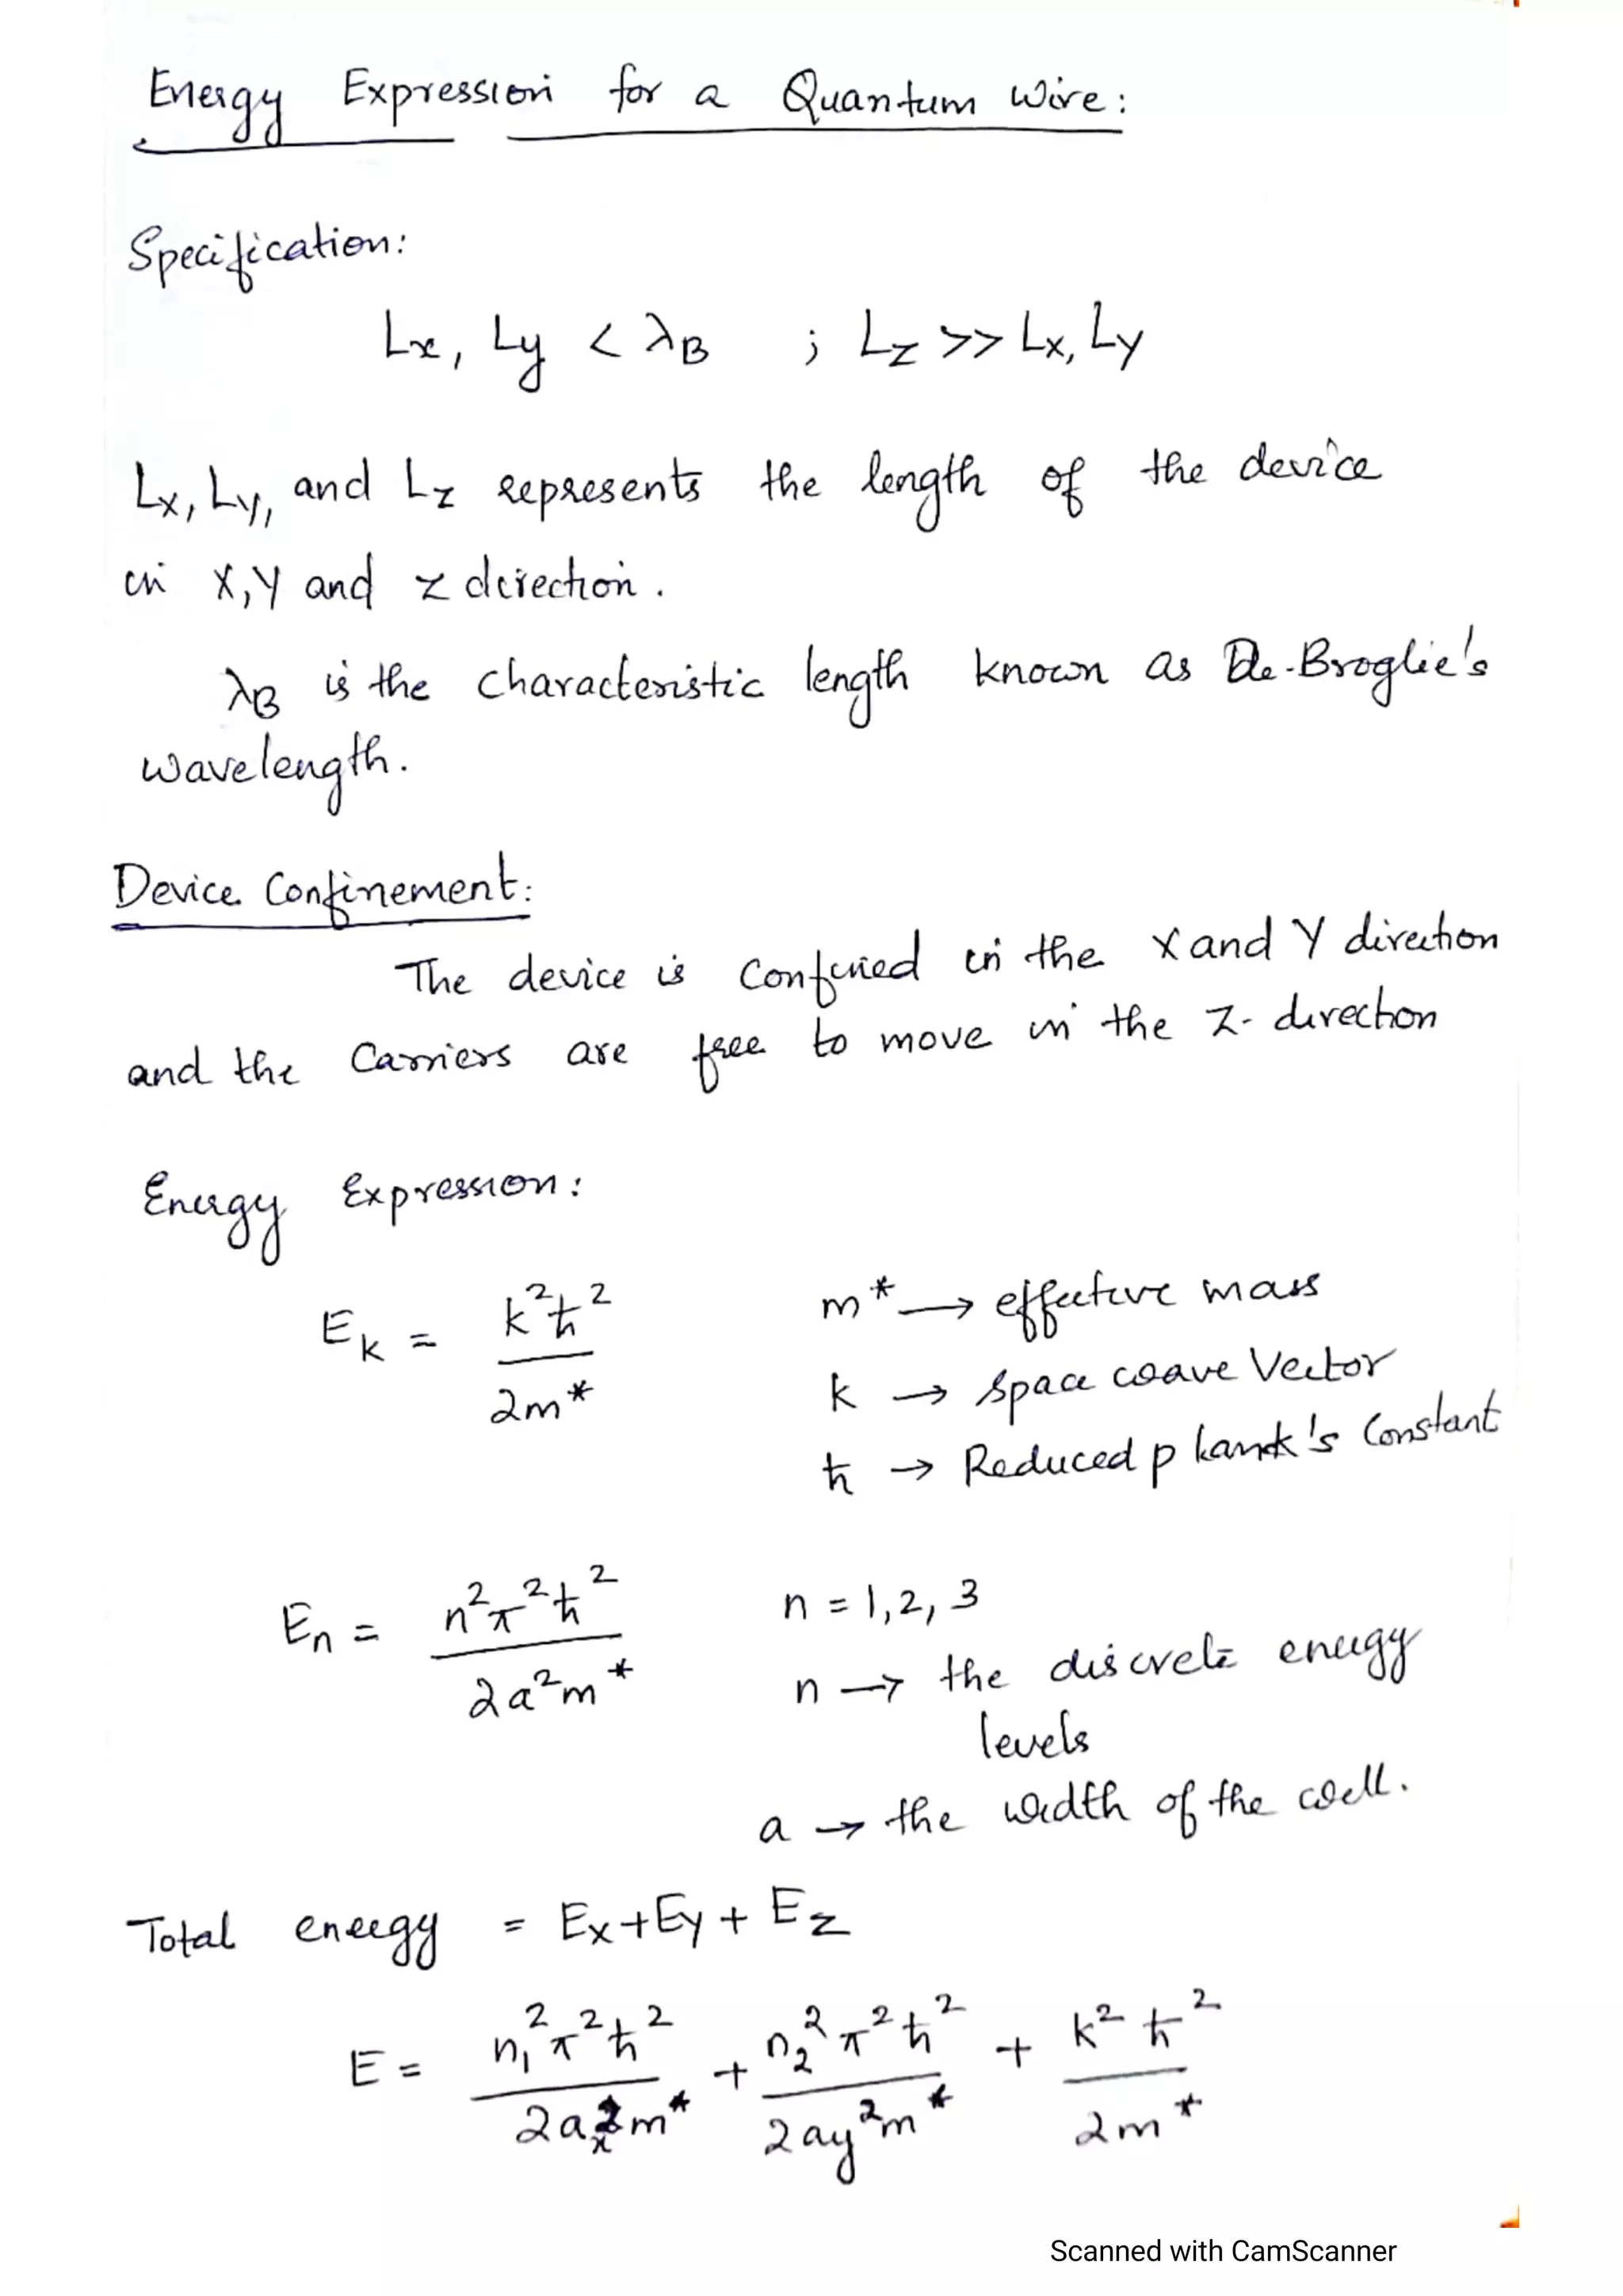 Energy Expression for a Quantum Wire:
Specification:
Lx, Ly < λB ; Lz >> Lx, Ly
Lx, Ly, and Lz represents the length of the device
in X, Y and Z direction.
λB is the characteristic length known as De-Broglie's
wavelength.
Device Confinement:
The device is confined in the X and Y direction
and the carriers are free to move in the Z-direction
Energy Expression:
E_k = k²ħ² / 2m*
m* → effective mass
k → space wave vector
ħ → Reduced plank's constant
E_n = n²π²ħ² / 2a²m*
n = 1, 2, 3
n → the discrete energy
levels
a → the width of the well.
Total energy = Ex + Ey + Ez
E = n₁²π²ħ² / 2aₓ²m* + n₂²π²ħ² / 2ay²m* + k²ħ² / 2m*
Scanned with CamScanner